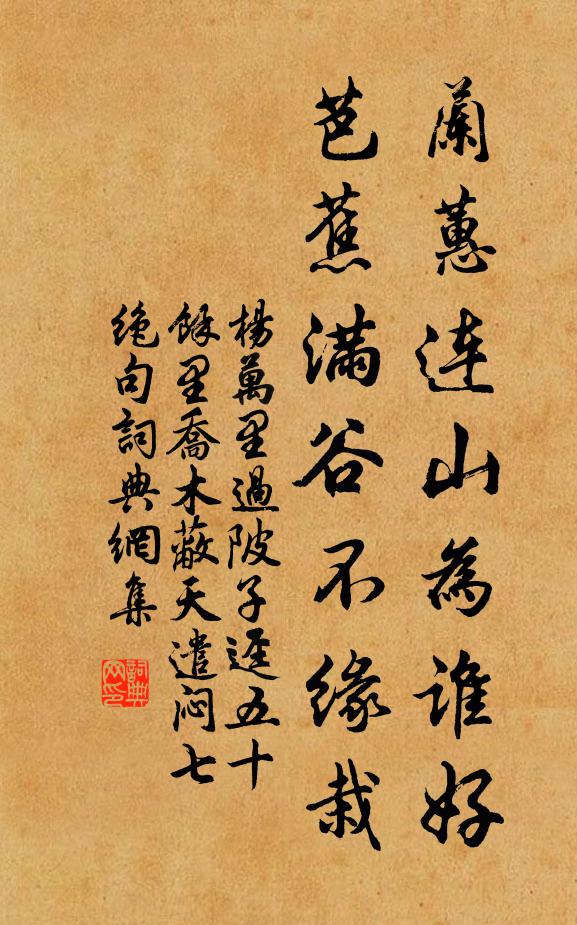 蘭蕙連山為誰好
芭蕉滿谷不緣栽
楊萬里過陂子逕五十
餘里喬木蔽天遣悶七
絕句詞典網集
詞典网印